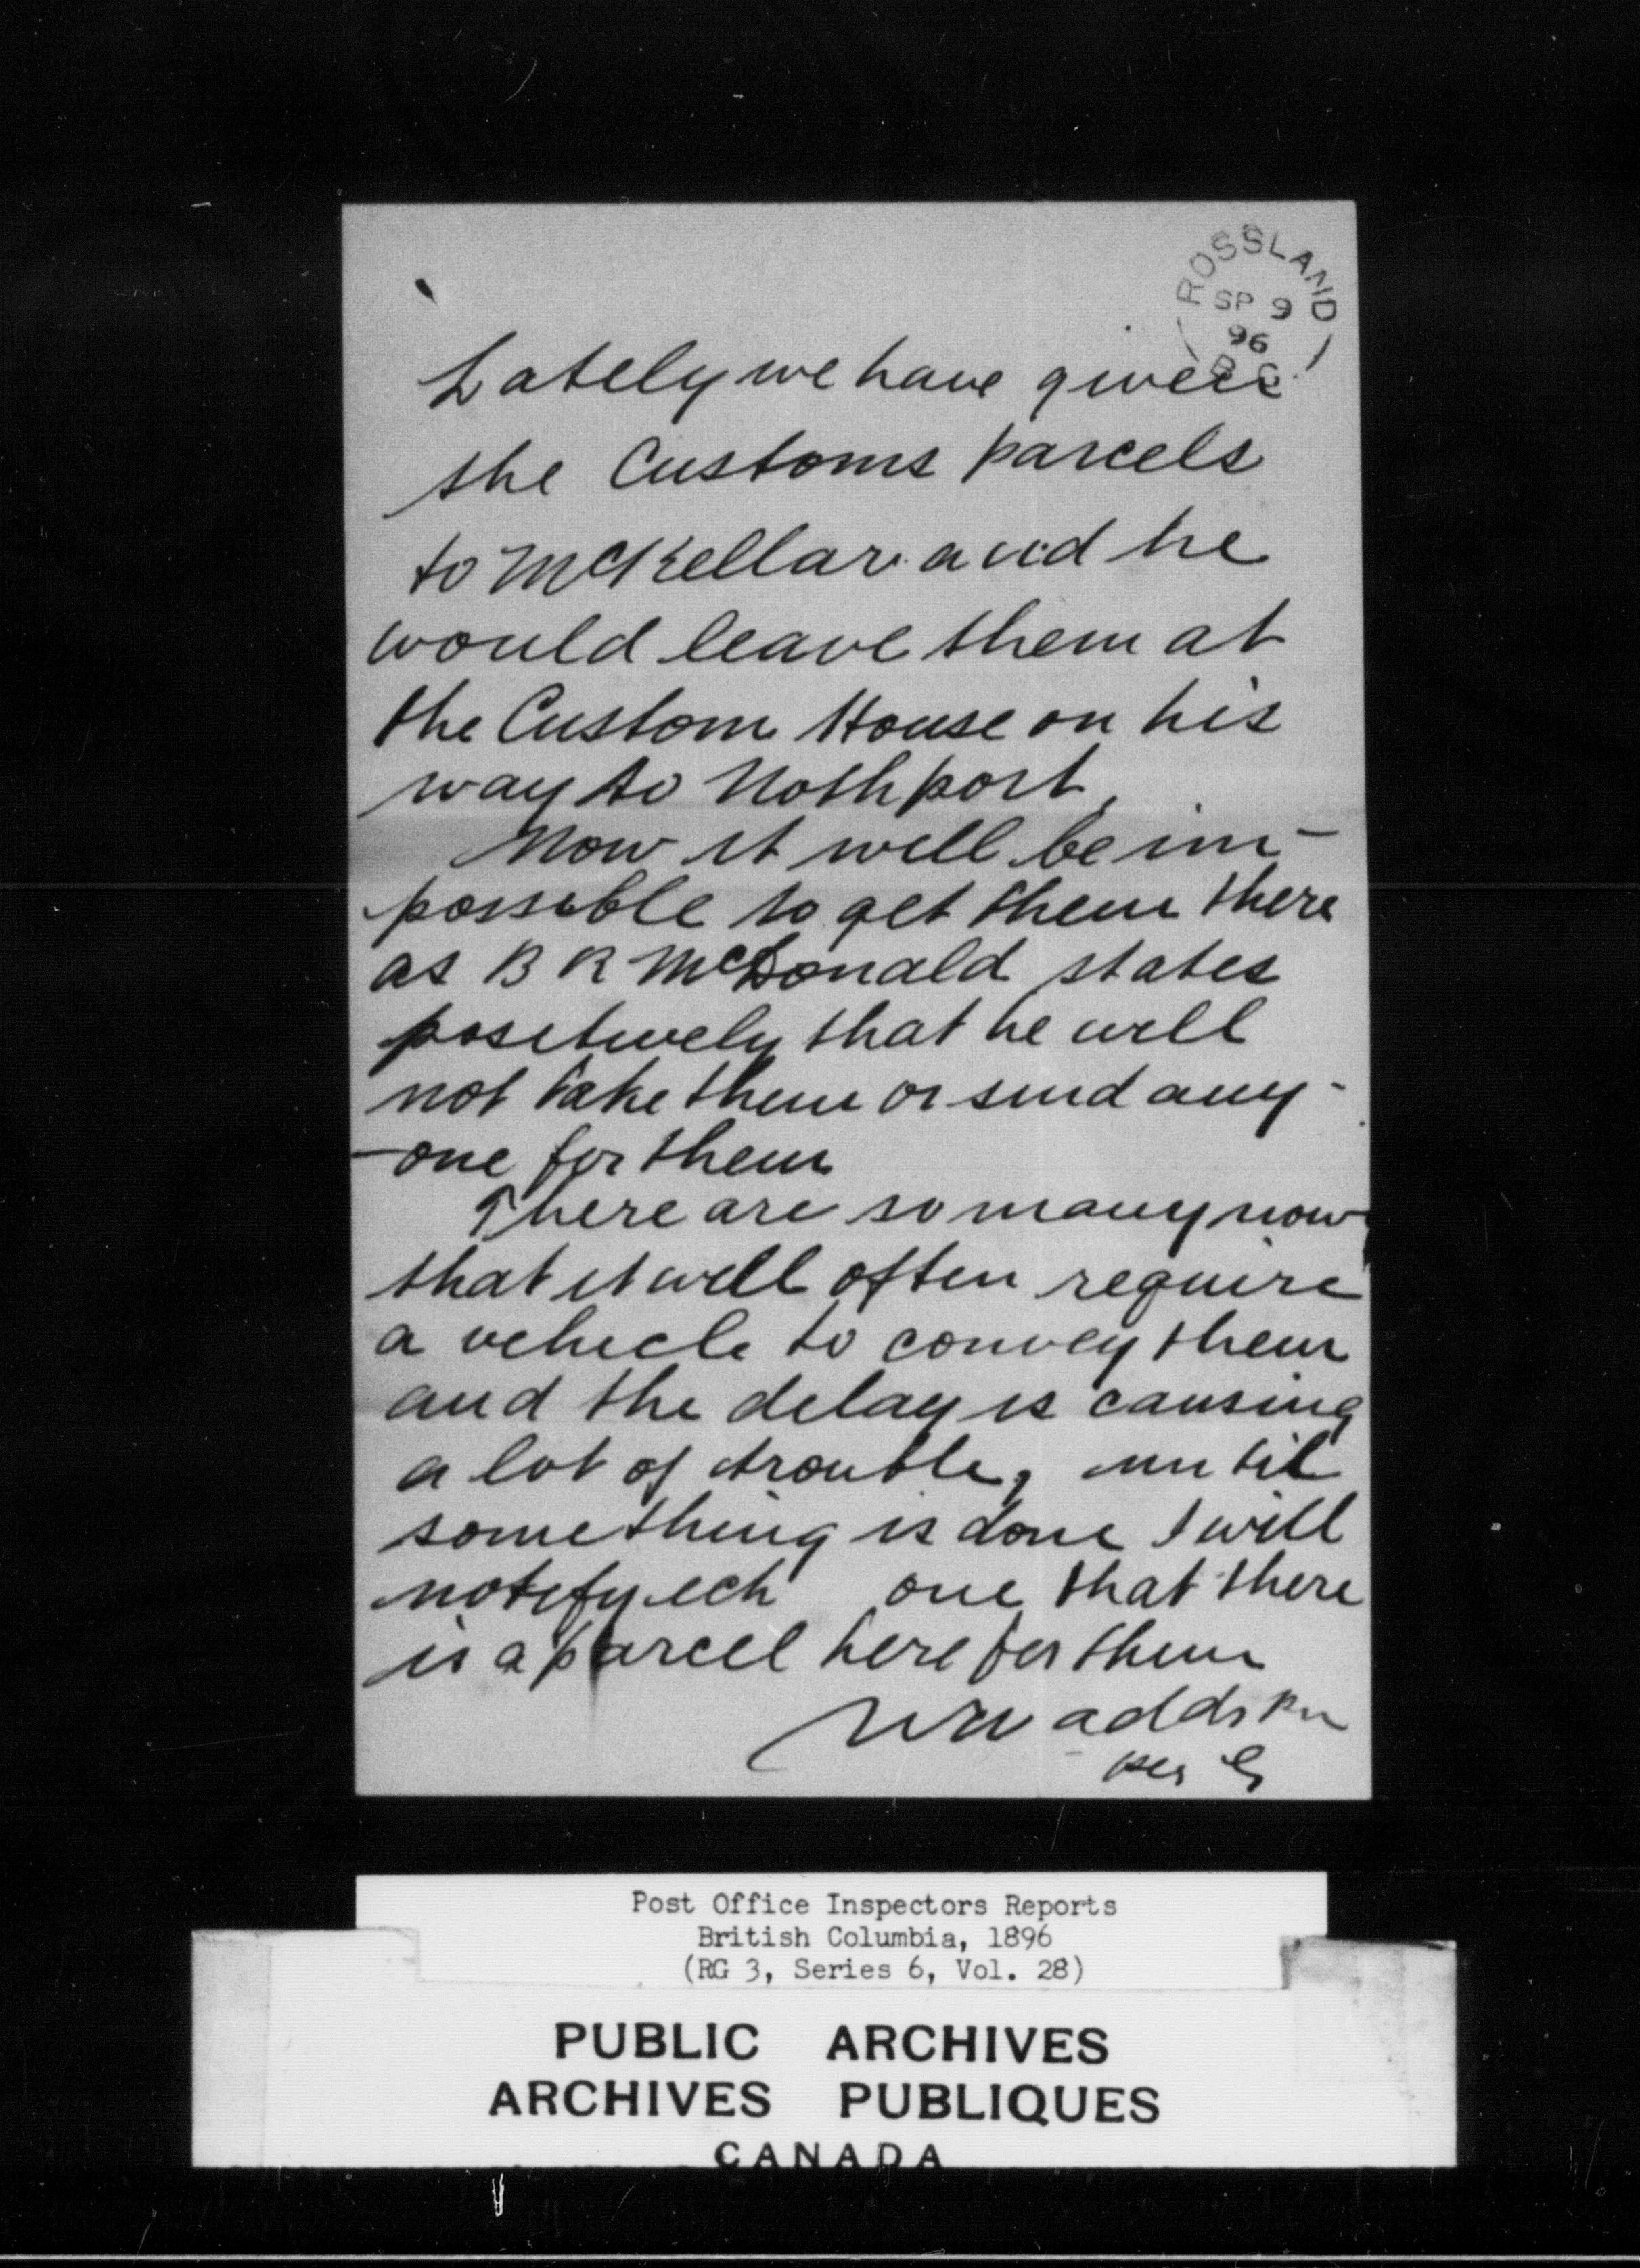 ROSSLAND
SP 9
96
B.C.
Lately we have given
the Customs parcels
to McKellar and he
would leave them at
the Custom House on his
way to Nothport,
Now it will be im-
possible to get them there
as B R McDonald states
positively that he will
not take them or send any-
-one for them
There are so many now
that it will often require
a vehicle to convey them
and the delay is causing
a lot of trouble, until
something is done I will
notify ech one that there
is a parcel here for them
Wadds
per G
Post Office Inspectors Reports
British Columbia, 1896
(RG 3, Series 6, Vol. 28)
PUBLIC ARCHIVES
ARCHIVES PUBLIQUES
CANADA